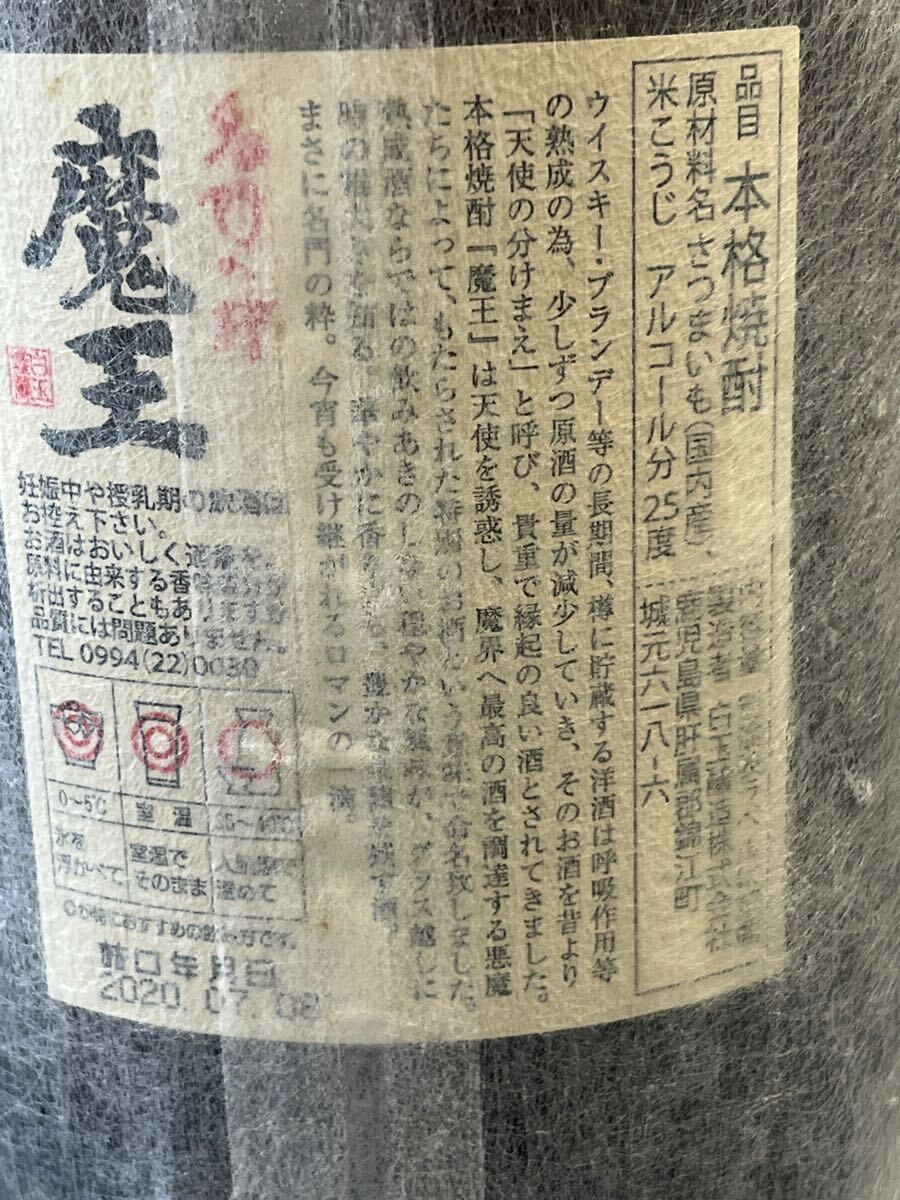 品目 本格焼酎
原材料名 さつまいも(国内産)、
米こうじ アルコール分25度
製造者 白玉醸造株式会社
鹿児島県肝属郡錦江町
城元六一八-六
ウイスキー・ブランデー等の長期間、樽に貯蔵する洋酒は呼吸作用等
の熟成の為、少しずつ原酒の量が減少していき、そのお酒を昔より
「天使の分けまえ」と呼び、貴重で縁起の良い酒とされてきました。
本格焼酎『魔王』は天使を誘惑し、魔界へ最高の酒を調達する悪魔
たちによって、もたらされた特別のお酒という意味で命名致しました。
熟成酒ならではの飲みあきのしない穏やかな味が、グラス越しに
まさに名門の粋。今宵も受け継がれるロマンの一滴。
名門の粋
魔王
妊娠中や授乳期の飲酒は
お控え下さい。
お酒はおいしく適量を
原料に由来する香味成分が
析出することもありますが、
品質には問題ありません。
TEL 0994(22)0030
0~5℃ 室温
氷を
浮かべて
室温で
そのまま
温めて
◎が特におすすめの飲み方です。
詰口年月日
2020.07.08